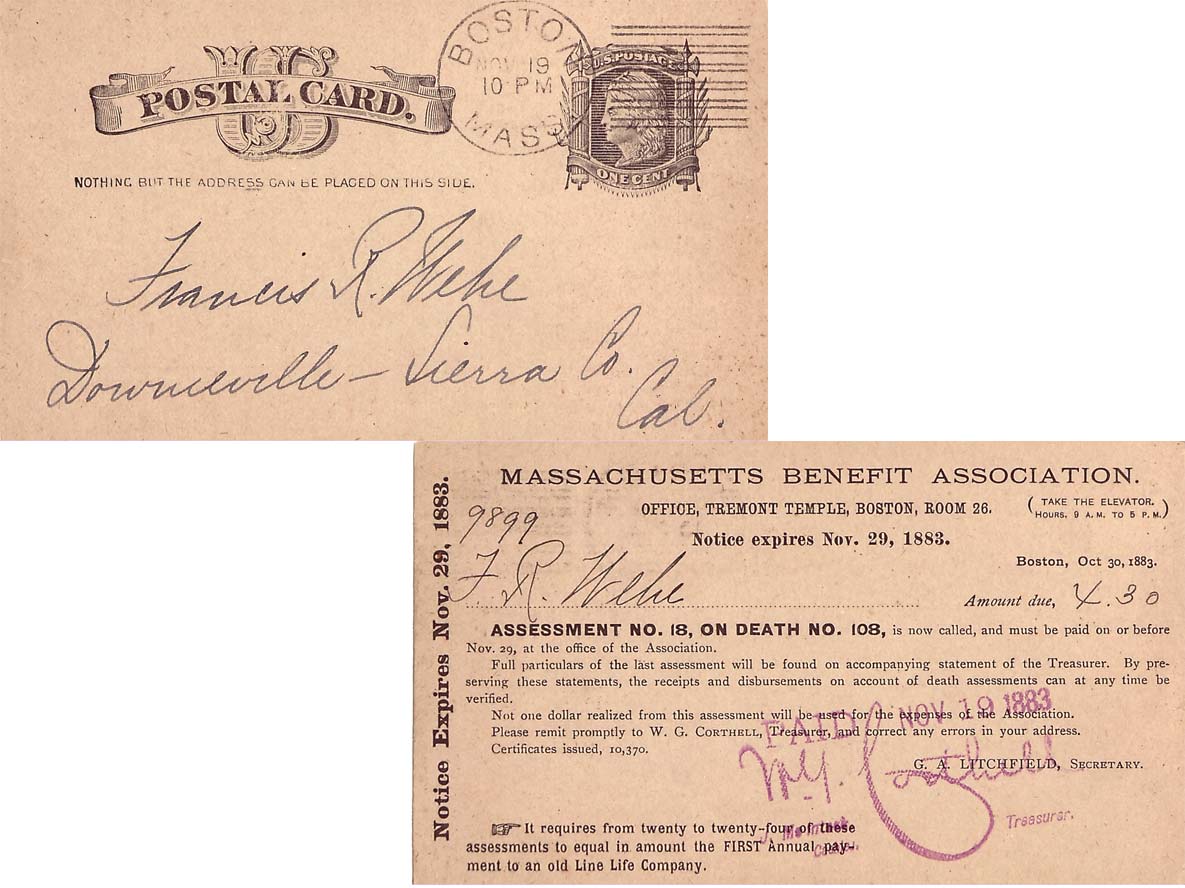 US
POSTAL CARD.
BOSTON
NOV 19
10 PM
MASS
U.S. POSTAGE
ONE CENT
NOTHING BUT THE ADDRESS CAN BE PLACED ON THIS SIDE.
Francis R. Wehe
Downieville — Sierra Co.
Cal.
Notice Expires Nov. 29, 1883.
MASSACHUSETTS BENEFIT ASSOCIATION.
OFFICE, TREMONT TEMPLE, BOSTON, ROOM 26.
(TAKE THE ELEVATOR.
HOURS. 9 A.M. TO 5 P.M.)
9899
Notice expires Nov. 29, 1883.
Boston, Oct 30, 1883.
F. R. Wehe
Amount due, 4.30
ASSESSMENT NO. 18, ON DEATH NO. 108, is now called, and must be paid on or before
Nov. 29, at the office of the Association.
Full particulars of the last assessment will be found on accompanying statement of the Treasurer. By pre-
serving these statements, the receipts and disbursements on account of death assessments can at any time be
verified.
Not one dollar realized from this assessment will be used for the expenses of the Association.
Please remit promptly to W. G. CORTHELL, Treasurer, and correct any errors in your address.
Certificates issued, 10,370.
G. A. LITCHFIELD, SECRETARY.
PAID NOV 19 1883
W. G. Corthell
Treasurer.
☞ It requires from twenty to twenty-four of these
assessments to equal in amount the FIRST Annual pay-
ment to an old Line Life Company.